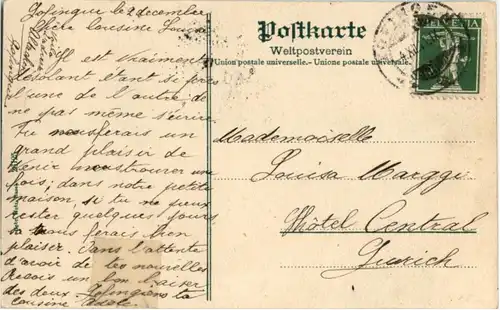 Zofingue le 2 décembre
Chère cousine Louisa
Il est vraiment
désolant étant si près
l'une de l'autre de
ne pas même s'écrire.
Tu nous ferais un
grand plaisir de
venir nous trouver une
fois; dans notre petite
maison, si tu ne peux
rester quelques jours
tu nous ferais bien
plaisir. Dans l'attente
d'avoir de tes nouvelles
Reçois un bon baiser
des deux Zofingiens ta
cousine Adèle
Postkarte
Weltpostverein
Union postale universelle. - Unione postale universale.
HELVETIA
Mademoiselle
Louisa Maggi
Hôtel Central
Zurich